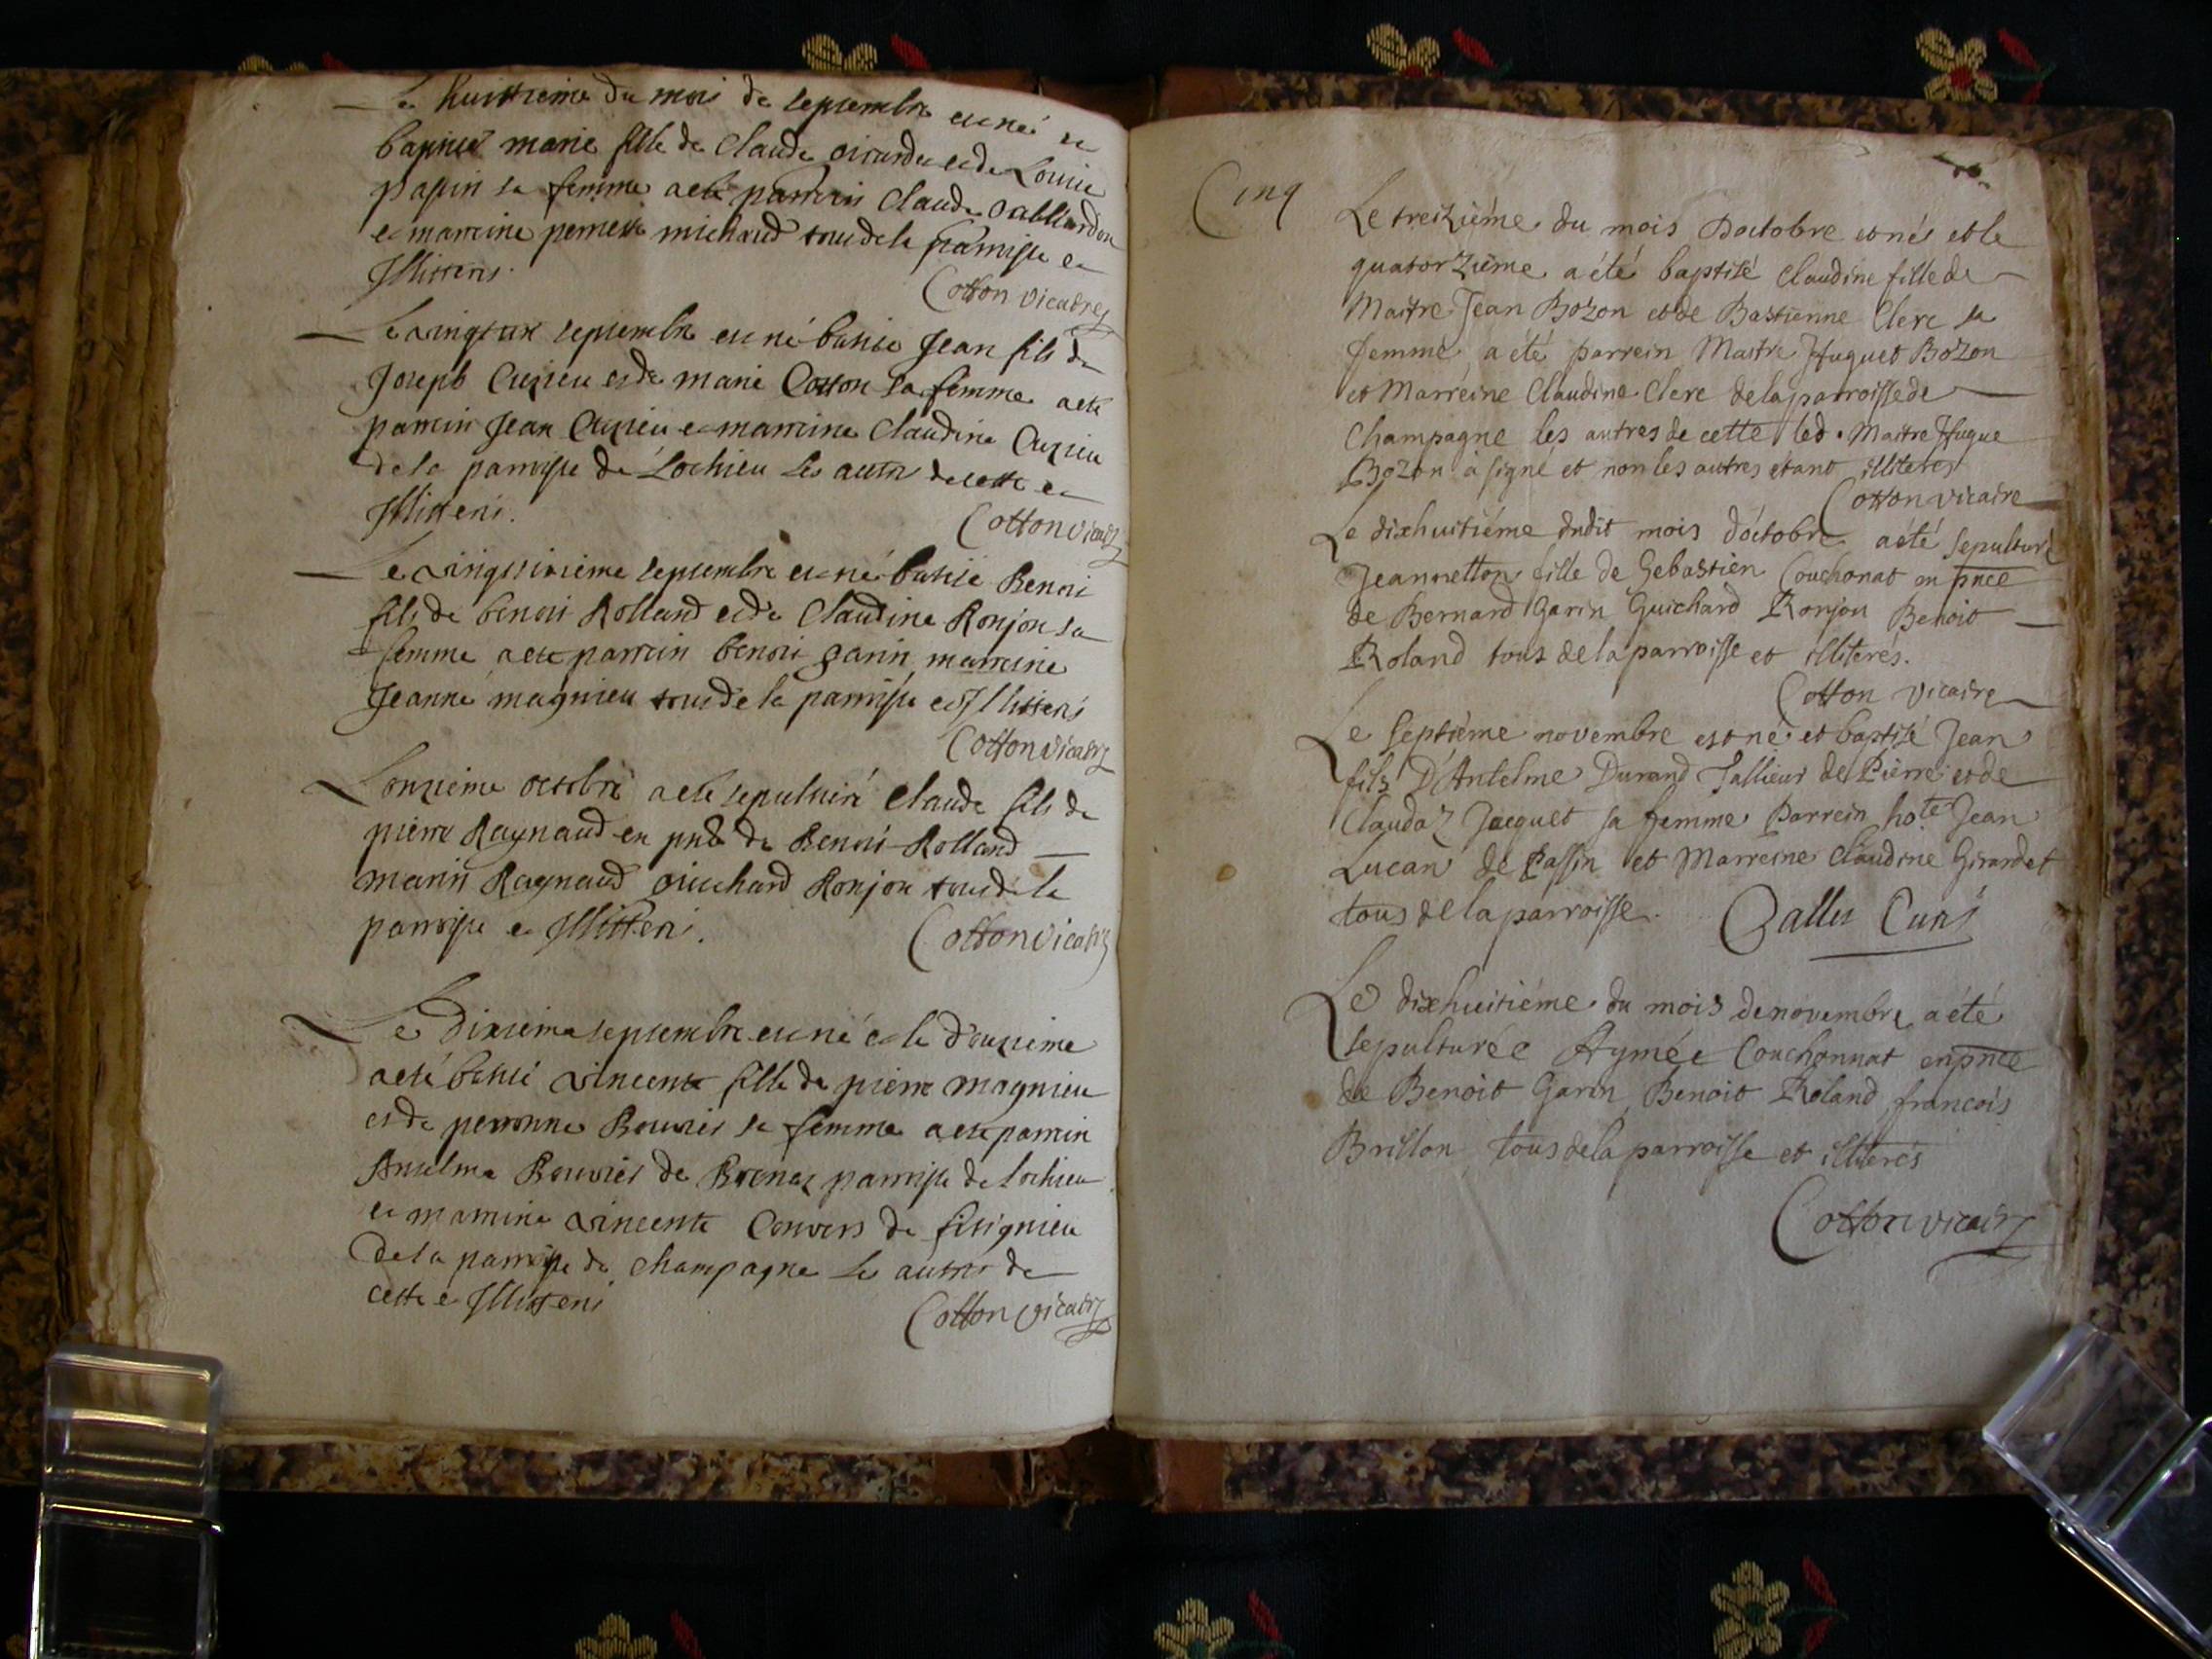 Le huittieme du mois de septembre est né et
baptisé marie fille de Claude Girardet et de Louise
papin sa femme a eté parrein Claude
et marreine pernette michaud tous de la parroisse et
Illitterés.
Cotton vicaire
Le septembre est né batisé Jean fils de
Joseph Cuzieu et de marie Cotton sa femme a eté
parrein Jean Cuzieu et marreine Claudine Cuzieu
de la parroisse de Lochieu les autres de cette et
Illitterés.
Cotton vicaire
Le vingtsixieme septembre est né batisé Benoit
fils de benoit Rolland et de Claudine Ronjon sa
femme a eté parrein benoit garin marreine
Jeanne magnieu tous de la parroisse et Illitterés
Cotton vicaire
L'onzieme octobre a eté sepulturé Claude fils de
pierre Raynaud en pnce de Benoit Rolland
marin Raynaud Guichard Ronjon tous de la
parroisse et Illitterés.
Cotton vicaire
Le Dixieme septembre est né et le d'ouzieme
a eté batisé vincente fille de pierre magnieu
et de perronne Bouvier sa femme a eté parrein
Anselme Bouvier de Brenaz parroisse de lochieu
et marreine vincente Convers de fitignieu
De la parroisse de Champagne les autres de
cette et Illitterés
Cotton vicaire
Cinq
Le treizième du mois Doctobre est né et le
quatorzième a été baptisé Claudine fille de
Maitre Jean Bozon et de Bastienne Clerc sa
femme a été parrein Maitre Huguet Bozon
et Marreine Claudine Clerc de la parroisse de
Champagne les autres de cette led. Maitre Hugue
Bozon à signé et non les autres étant illiterés
Cotton vicaire
Le dixhuitiéme dudit mois d'octobre a été sepulturé
Jeannetton fille de Sebastien Couchonat en pnce
de Bernard Garin Guichard Ronjon Benoit
Roland tous de la parroisse et illiterés.
Cotton vicaire
Le septième novembre est né et baptisé Jean
fils D'Antelme Durand Tallieur de Pierre et de
Claudaz Jacquet sa femme Parrein hote Jean
Lucan de Passin et Marreine Claudine Girardet
tous de la parroisse. Curé
Le dixhuitiéme du mois de novembre a été
sepulturée Aymée Couchonnat en pnce
de Benoit Garin Benoit Roland françois
Brillon tous de la parroisse et illiterés
Cotton vicaire